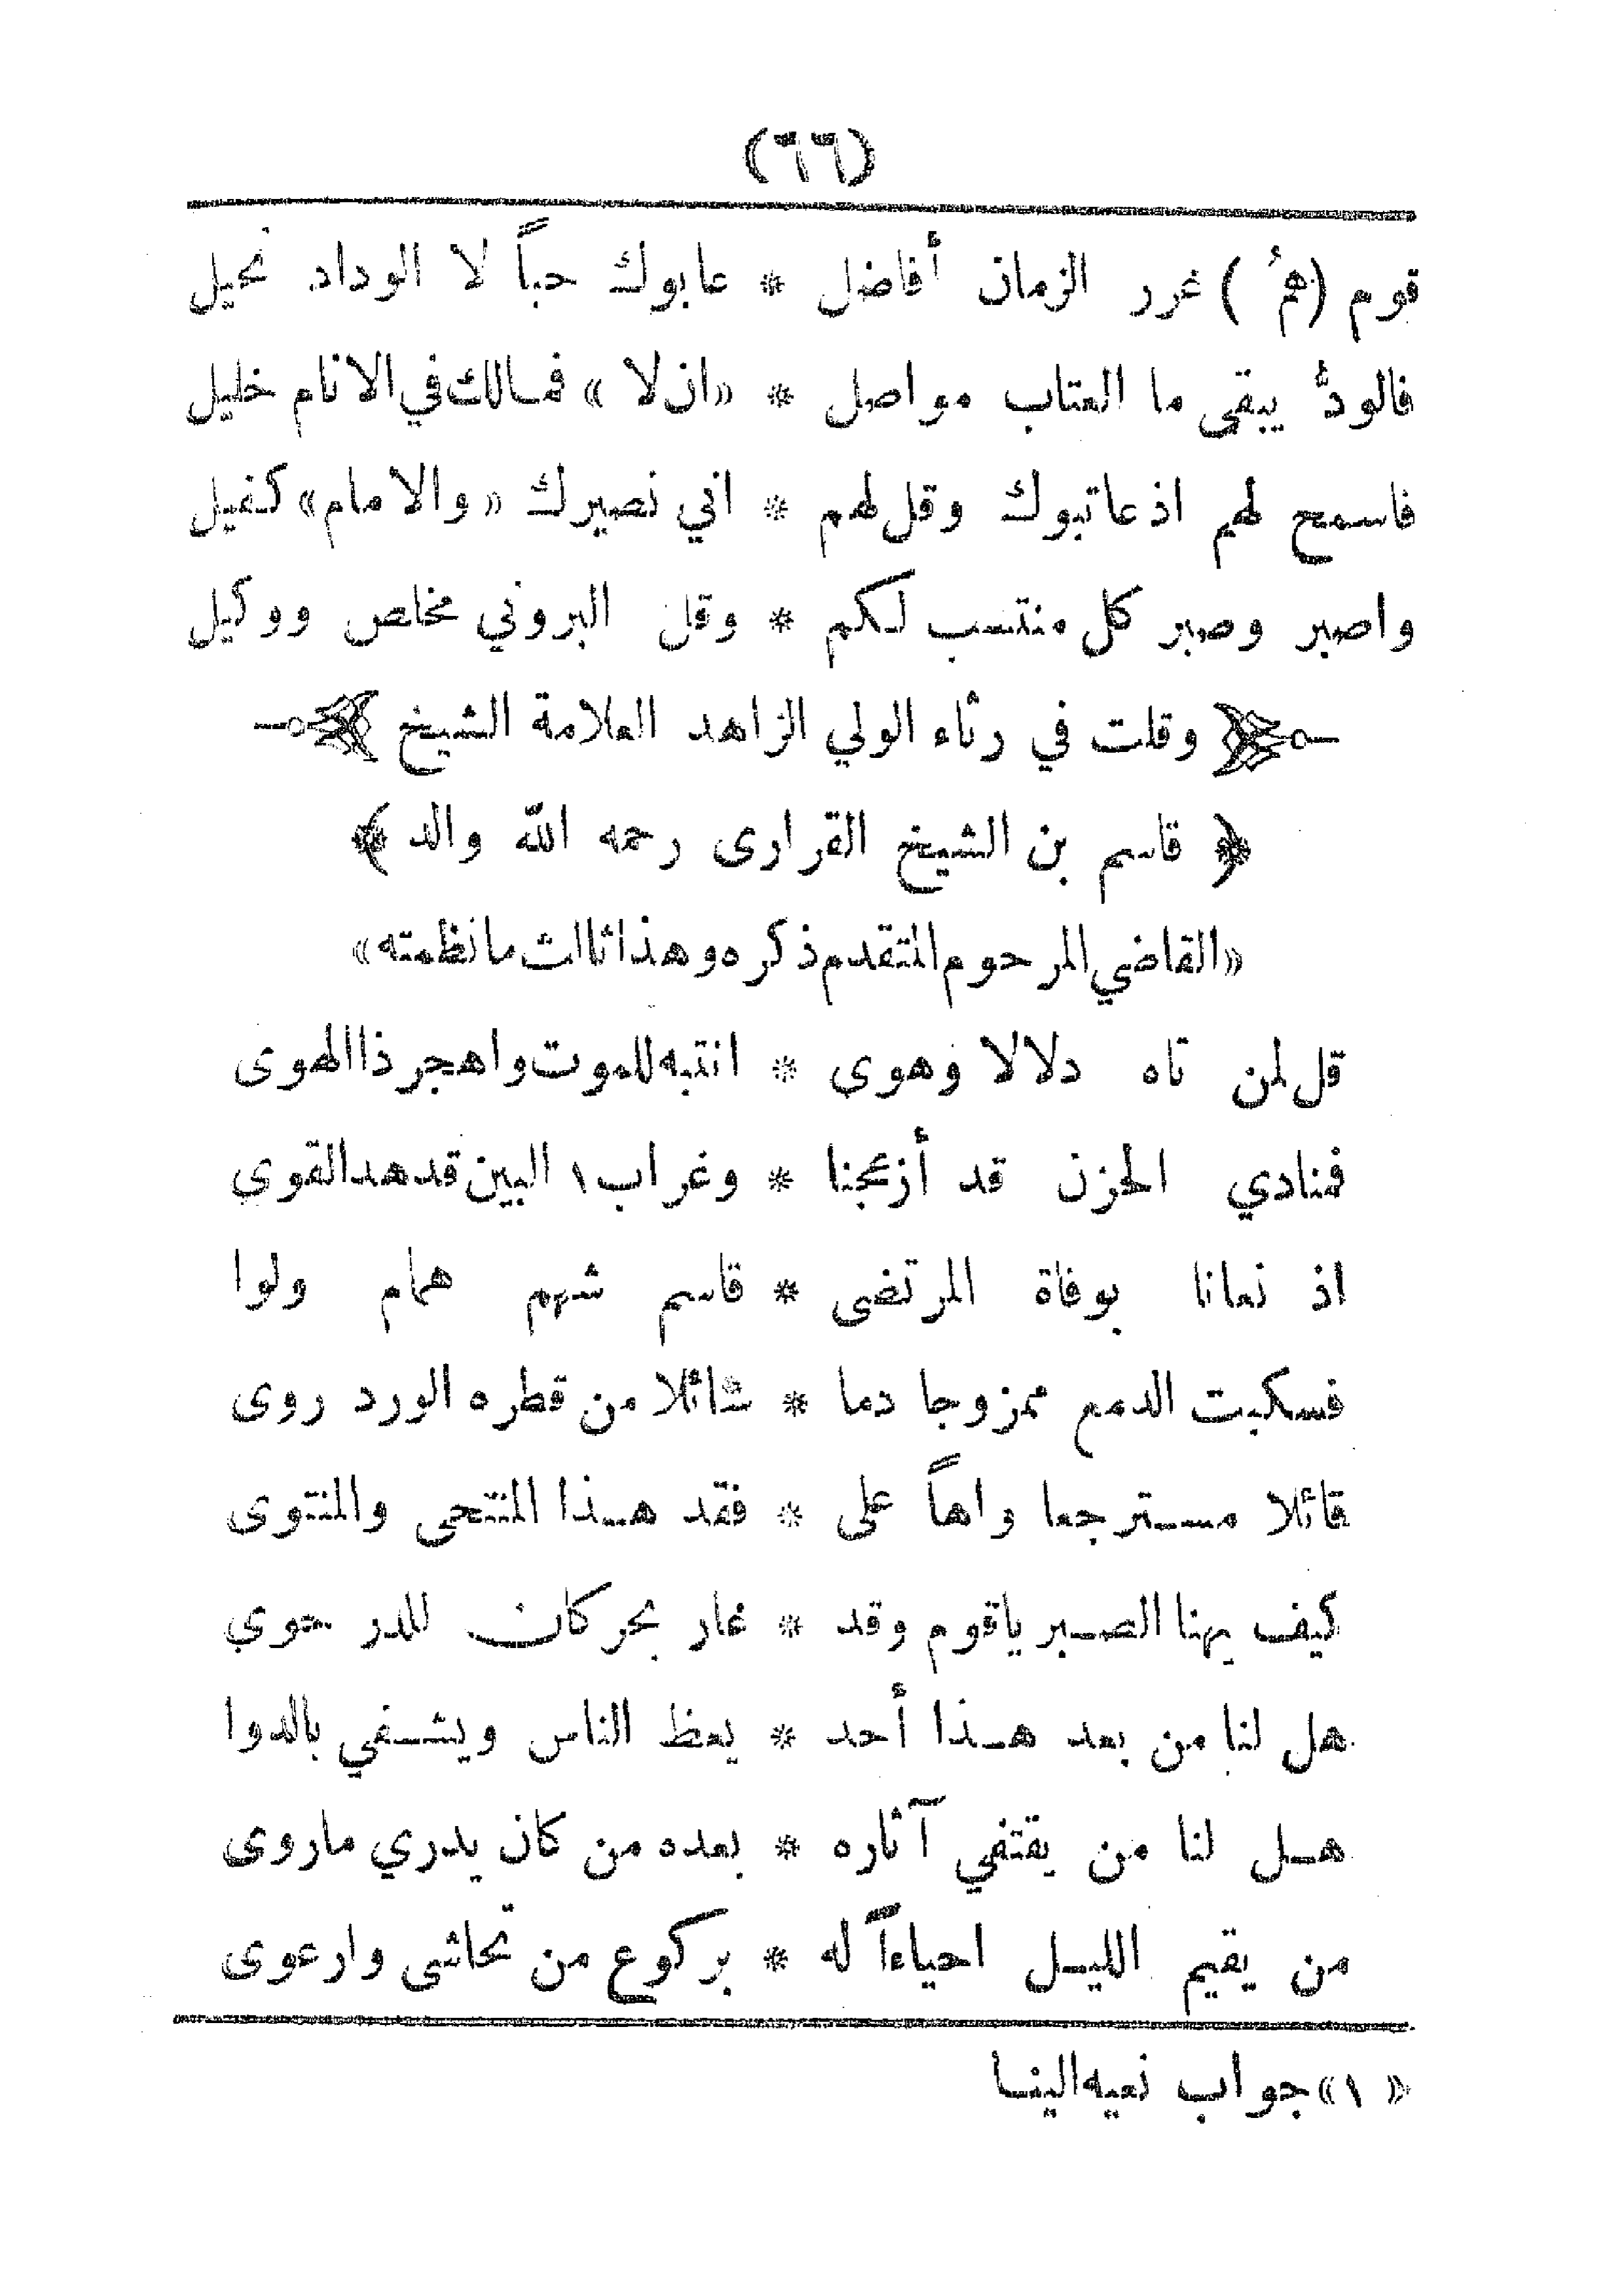 (٦٦)
قوم (همُ) غرر الزمان أفاضل * عابوك حباً لا الوداد نحيل
فالودُّ يبقى ما العتاب مواصل * «ان لا» فمالك في الانام خليل
فاسمح لهم اذ عاتبوك وقل لهم * اني نصيرك «والامام» كفيل
واصبر وصبر كل منتسب لكم * وقل البروني مخلص ووكيل
وقلت في رثاء الولي الزاهد العلامة الشيخ
﴿ قاسم بن الشيخ القرارى رحمه الله والد ﴾
«القاضي المرحوم المتقدم ذكره وهذا ثالث ما نظمته»
قل لمن تاه دلالا وهوى * انتبه للموت واهجر ذا الهوى
فمنادي الحزن قد أزعجنا * وغراب ١ البين قد هد القوى
اذ نعانا بوفاة المرتضى * قاسم شهم همام ولوا
فسكبت الدمع ممزوجا دما * سائلا من قطره الورد روى
قائلا مسترجعا واهاً على * فقد هذا المنتحى والمنتوى
كيف يهنا الصبر ياقوم وقد * غار بحر كان للدر حوي
هل لنا من بعد هذا أحد * يعظ الناس ويشفي بالدوا
هل لنا من يقتفي آثاره * بعده من كان يدري ماروى
من يقيم الليل احياءاً له * بركوع من تحاشى وارعوى
«١» جواب نعيه الينا